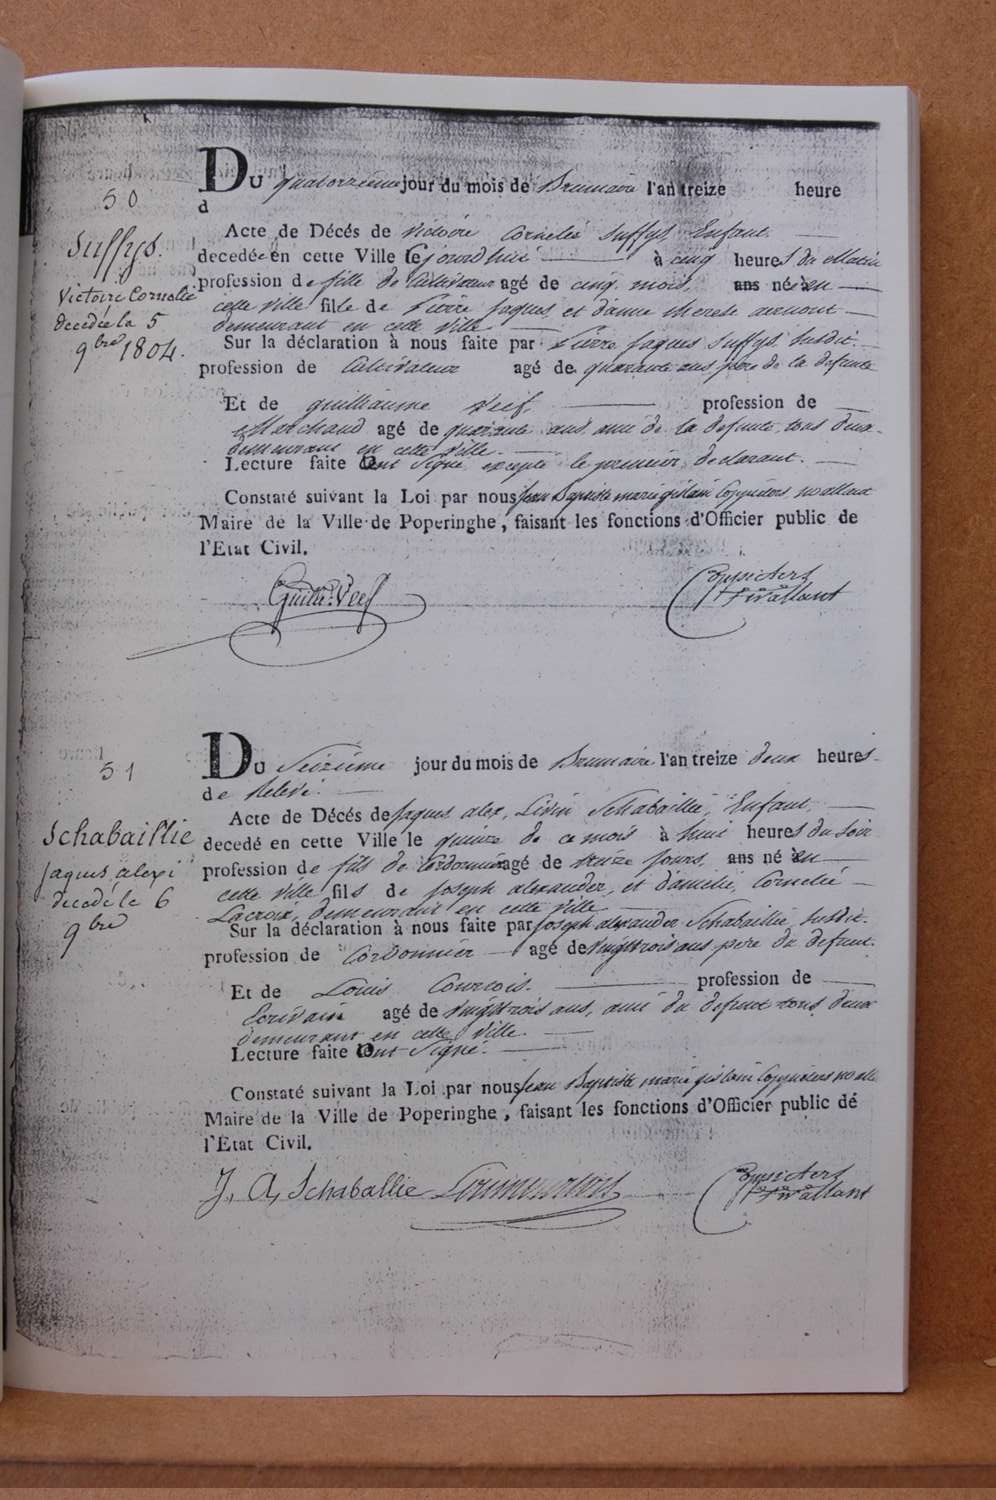 50
Suffys.
Victoire Cornelie
decedée la 5
9bre 1804.
Du quatorzieme jour du mois de Brumaire l'an treize heure
d
Acte de Décés de victoire Cornelie Suffys, Enfant
decedée en cette Ville le jourdhui à cinq heures du Matin
profession de fille de Cultivateur agé de cinq mois, ans né en
cette ville fille de Pierre Jaques et d'anne therese
demeurant en cette ville.
Sur la déclaration à nous faite par Pierre Jaques Suffys susdit.
profession de Cultivateur agé de quarante ans pere de la defunte
Et de guilliaume Veef, profession de
Marchand agé de quarante ans, ami de la defunte, tous deux
demeurant en cette ville.
Lecture faite ont Signé, excepté le premier declarant.
Constaté suivant la Loi par nous Jean Baptiste marie gislain Coppieters wallant
Maire de la Ville de Poperinghe, faisant les fonctions d'Officier public de
l'Etat Civil.
Guill: Veef
Coppieters
wallant
51
Schabaillie
jaques, alexi
decedé le 6
9bre
Du Seizieme jour du mois de Brumaire l'an treize deux heures
de Relevé.
Acte de Décés de Jaques alex, Livin Schabaillie, Enfant,
decedé en cette Ville le quinze de ce mois à huit heures du Soir
profession de fils de Cordonnier agé de jours, ans né en
cette ville fils de Joseph alexander, et d'amelie, Cornelie
Lacroix, demeurant en cette ville
Sur la déclaration à nous faite par Joseph alexander Schabaillie, susdit.
profession de Cordonnier agé de vingttrois ans pere du defunt.
Et de Louis Courtois. profession de
Ecrivain agé de vingttrois ans, ami du defunt tous deux
demeurant en cette ville.
Lecture faite ont Signé.
Constaté suivant la Loi par nous Jean Baptiste marie gislain Coppieters walla
Maire de la Ville de Poperinghe, faisant les fonctions d'Officier public de
l'Etat Civil.
J, A, Schaballie
Coppieters
wallant